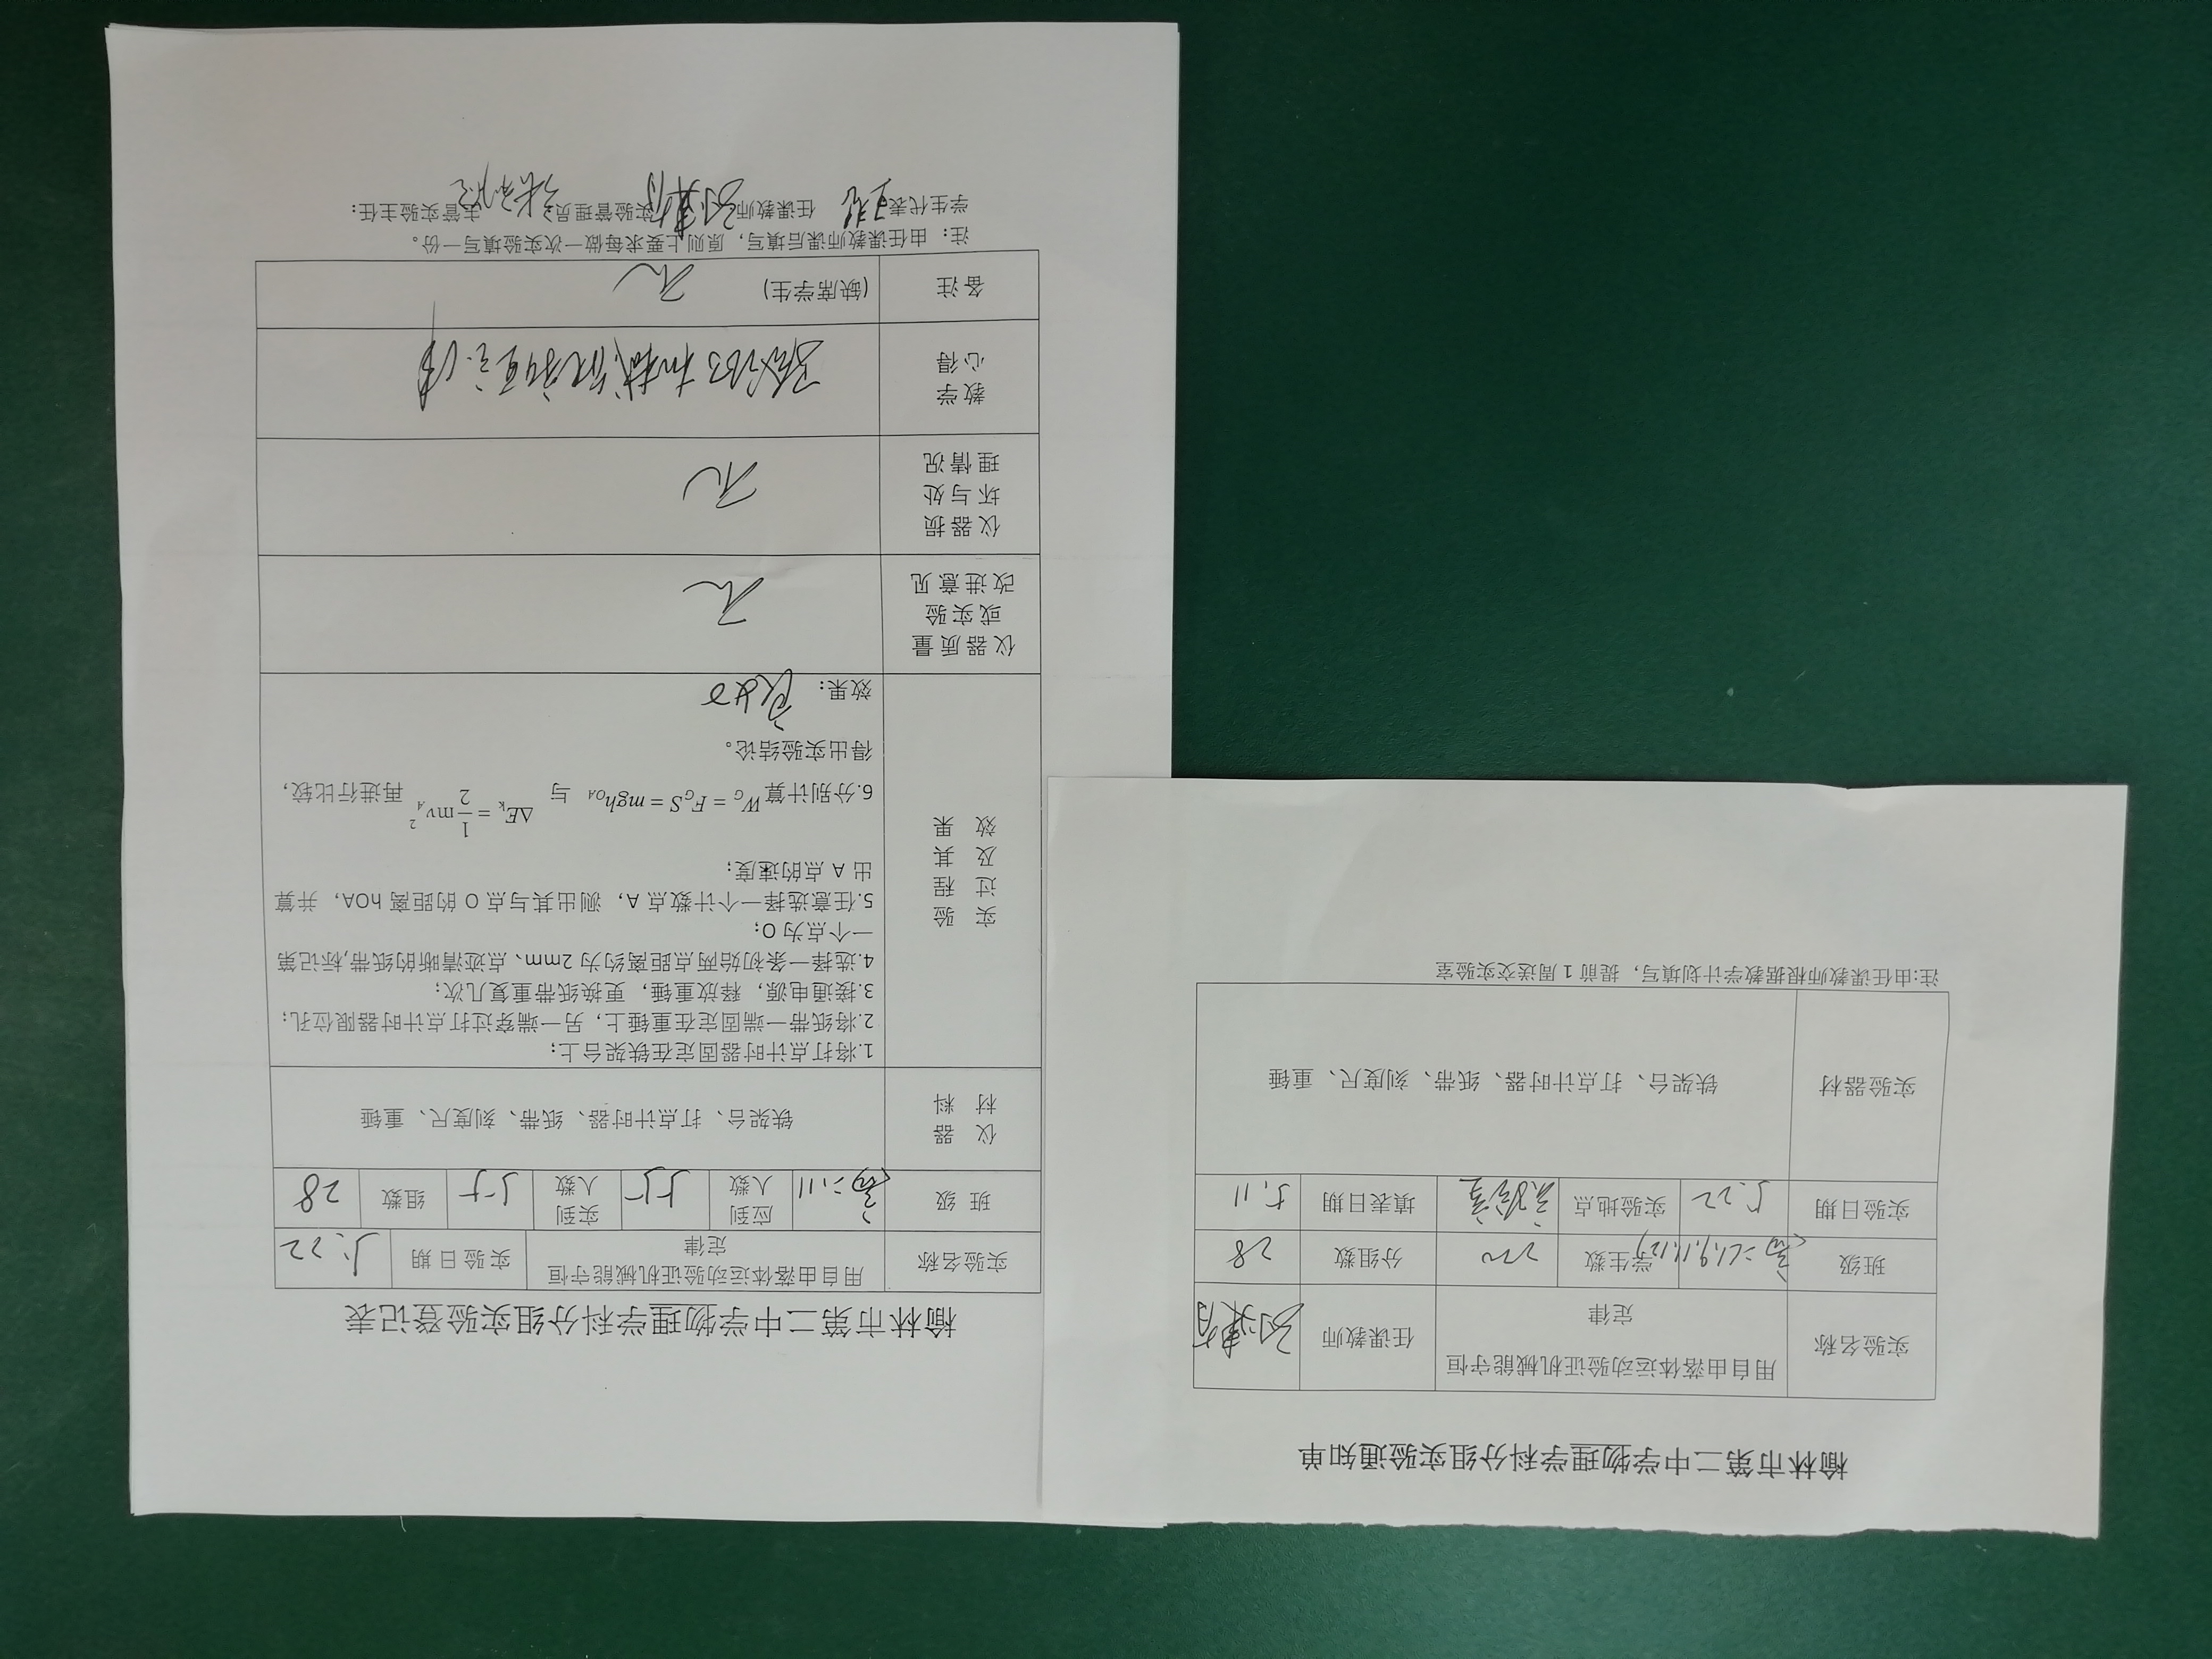 榆林市第二中学物理学科分组实验通知单
实验名称 用自由落体运动验证机械能守恒定律 任课教师
班级 高二(1,9,11,12) 学生数 220 分组数 28
实验日期 5.22 实验地点 实验室 填表日期 5.11
实验器材 铁架台、打点计时器、纸带、刻度尺、重锤
注:由任课教师根据教学计划填写，提前 1 周送交实验室
榆林市第二中学物理学科分组实验登记表
实验名称 用自由落体运动验证机械能守恒定律 实验日期 5.22
班级 高二.11 应到人数 55 实到人数 55 组数 28
仪器材料 铁架台、打点计时器、纸带、刻度尺、重锤
实验过程及其效果
1.将打点计时器固定在铁架台上；
2.将纸带一端固定在重锤上，另一端穿过打点计时器限位孔；
3.接通电源，释放重锤，更换纸带重复几次；
4.选择一条初始两点距离约为 2mm、点迹清晰的纸带,标记第
一个点为 O；
5.任意选择一个计数点 A，测出其与点 O 的距离 hOA，并算
出 A 点的速度；
6.分别计算 W_G = F_G S = mgh_OA 与 ΔE_k = 1/2 mv_A² 再进行比较，
得出实验结论。
效果：良好
仪器质量或实验改进意见 无
仪器损坏与处理情况 无
教学心得 验证了机械能守恒定律
备注 (缺席学生) 无
注：由任课教师课后填写，原则上要求每做一次实验填写一份。
学生代表 任课教师 实验管理员： 主管实验主任：